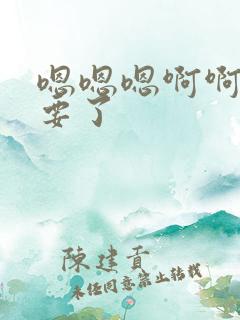 嗯嗯嗯啊啊
要了
陳建貢
未任同意禁止转载